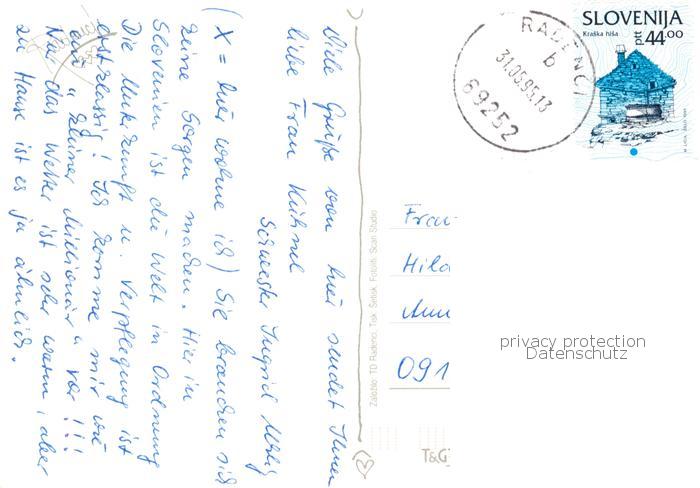 Viele Grüße von hier sendet Ihnen
liebe Frau Kühnel
Schwester Ingrid
(X = hier wohne ich) Sie brauchen sich
keine Sorgen machen. Hier in
Slovenien ist die Welt in Ordnung
Die Unterkunft u. Verpflegung ist
erstklassig! Ich komme mir wie
ein "kleiner Millionär" vor!!!
Nur das Wetter ist sehr warm, aber
zu Hause ist es ja ähnlich.
Založilo: TD Radenci, Tisk: Šetisk, Fotoliti: Scan Studio
RADENCI
b
31.05.95.13
69252
SLOVENIJA
Kraška hiša
ptt 44.00
Frau
Hild
091
T&G
privacy protection
Datenschutz